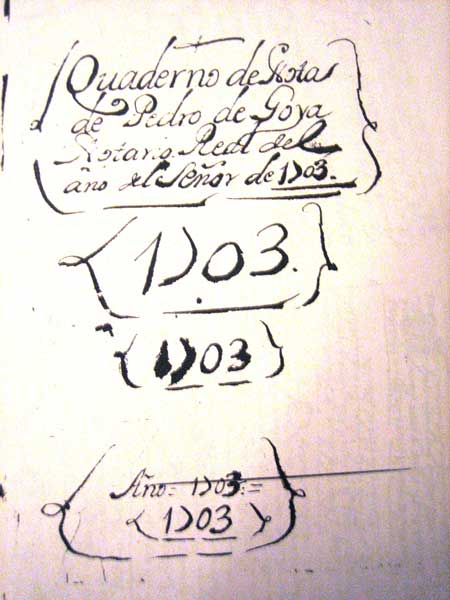 Quaderno de Notas
de Pedro de Goya
Notario Real del
año del Señor de 1703.
1703.
1703
Año = 1703 =
1703